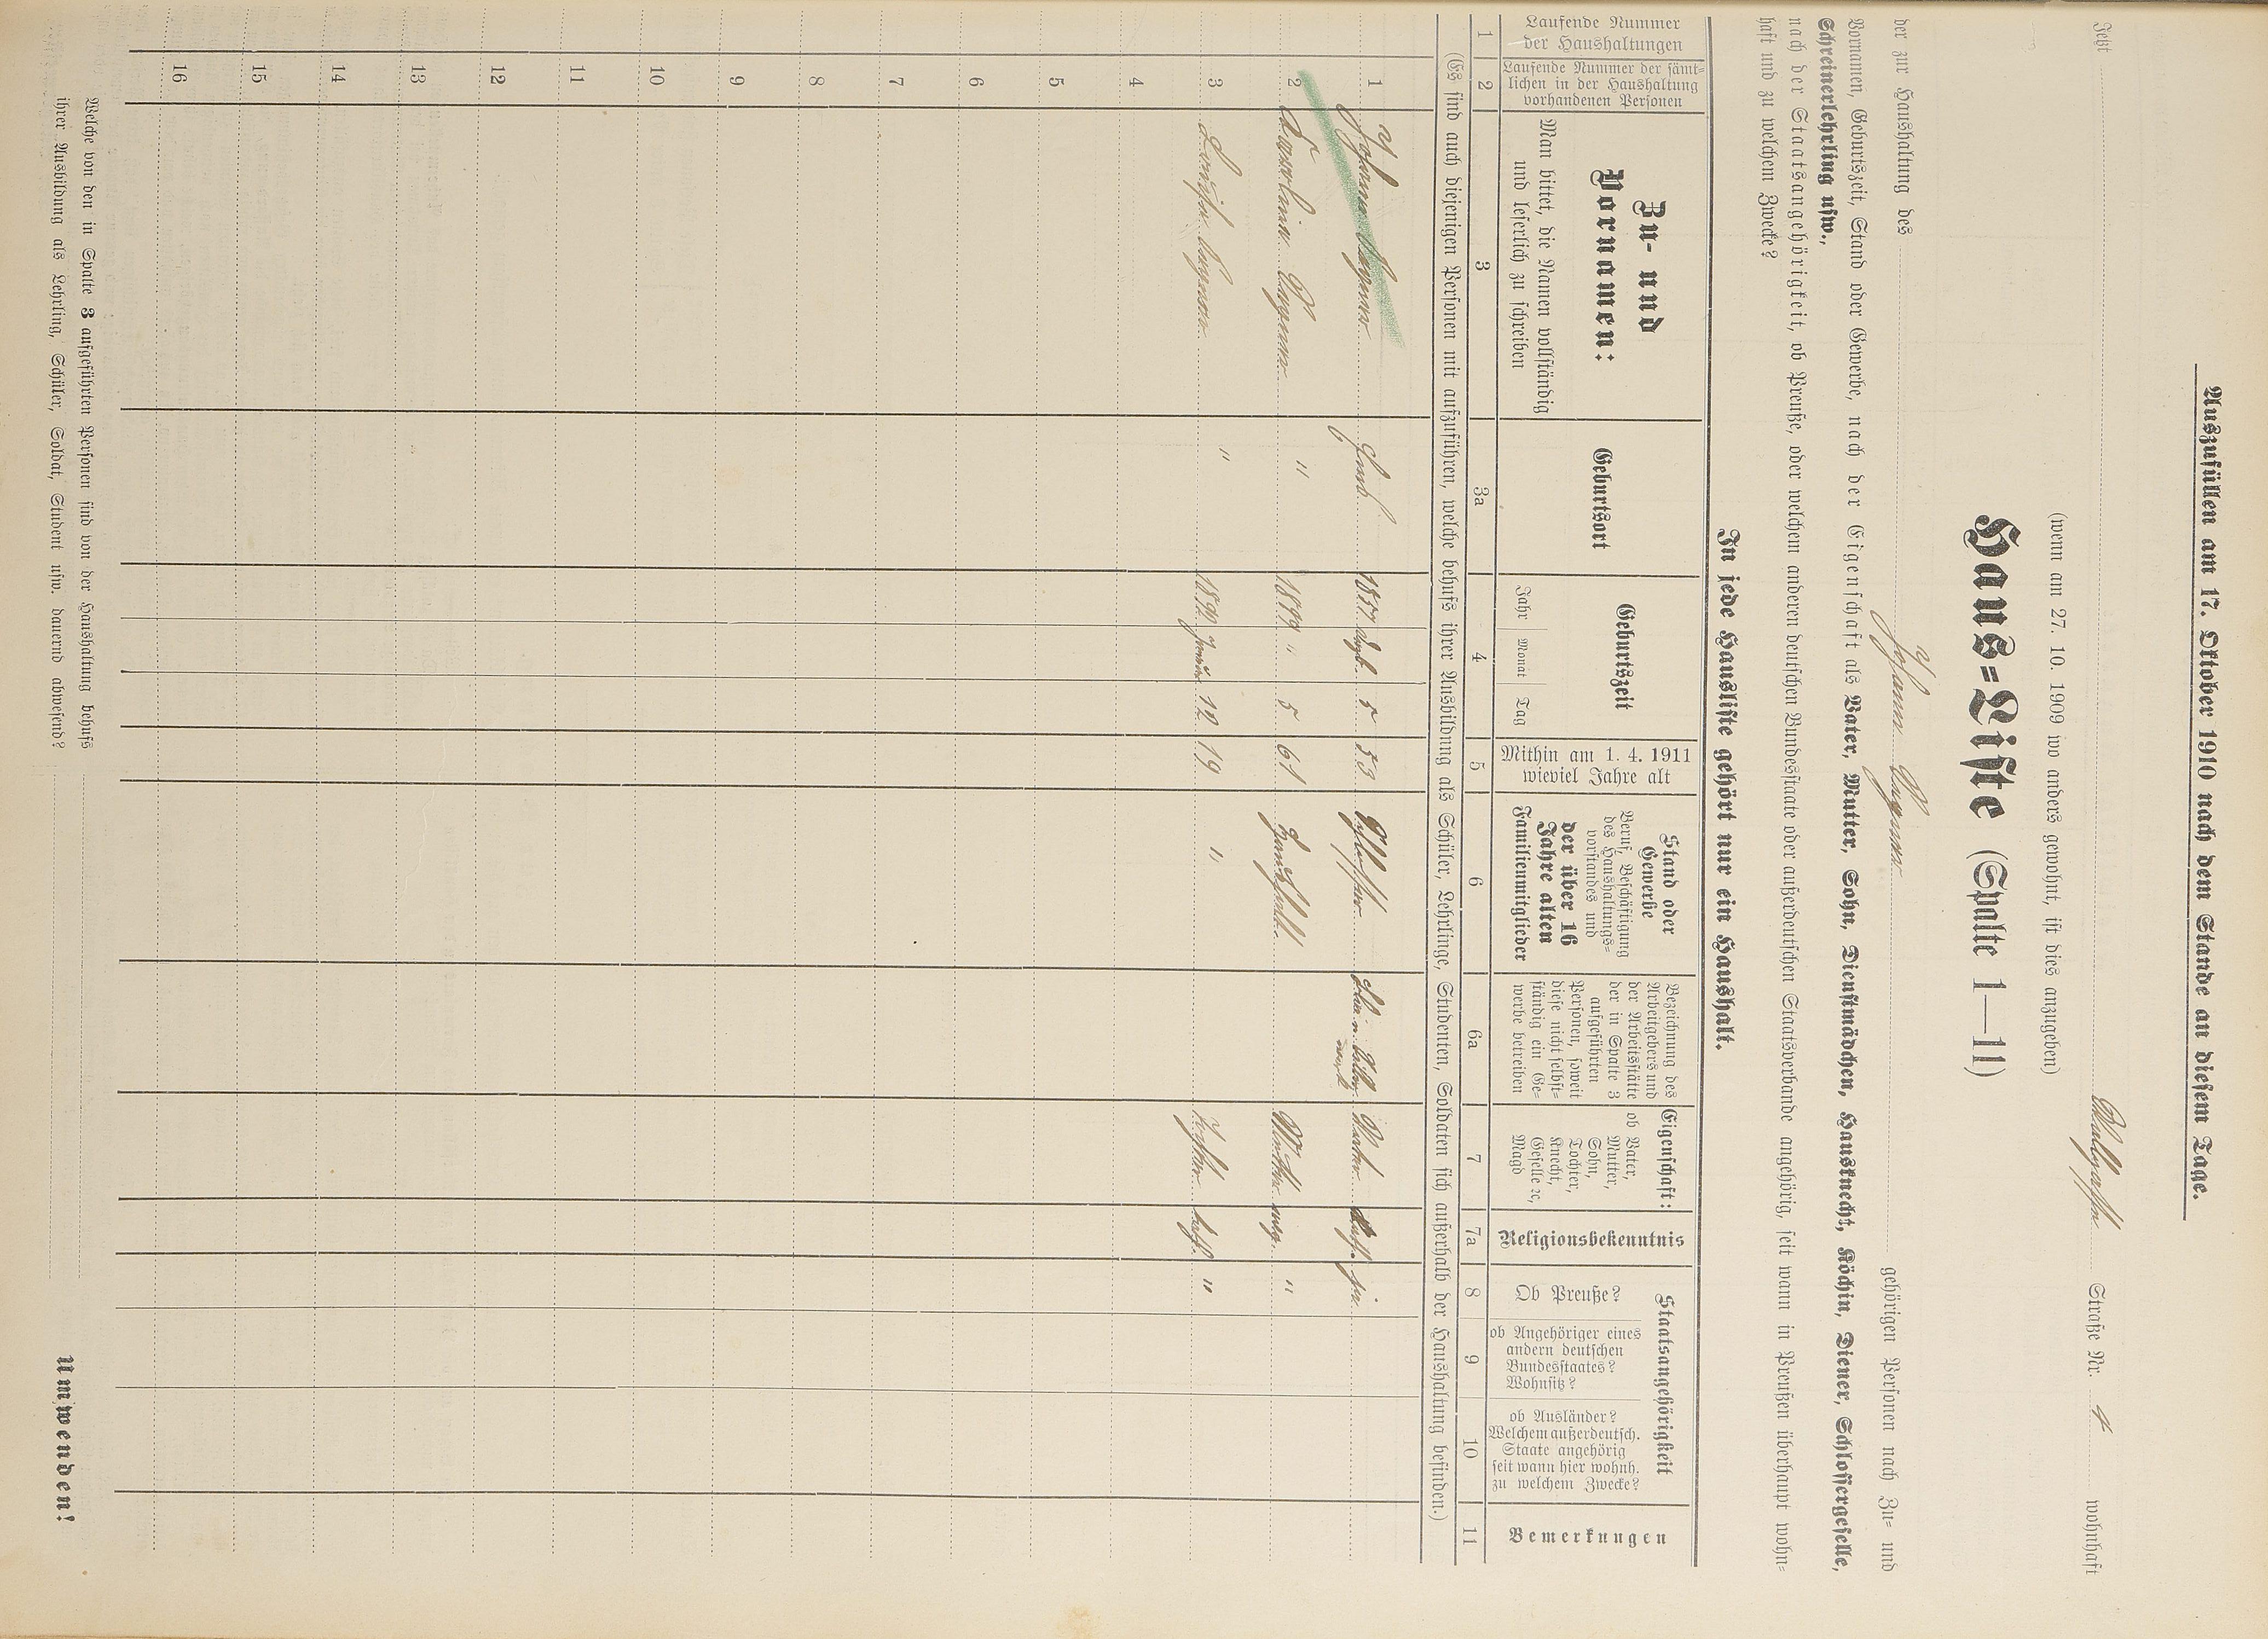 Auszufüllen am 17. Oktober 1910 nach dem Stande an diesem Tage.
Jetzt Straße Nr. 4 wohnhaft
(wenn am 27. 10. 1909 wo anders gewohnt, ist dies anzugeben)
Haus=Liste (Spalte 1—11)
der zur Haushaltung des Johann gehörigen Personen nach Zu= und
Vornamen, Geburtszeit, Stand oder Gewerbe, nach der Eigenschaft als Vater, Mutter, Sohn, Dienstmädchen, Hausknecht, Köchin, Diener, Schlossergeselle,
Schreinerlehrling usw.,
nach der Staatsangehörigkeit, ob Preuße, oder welchem anderen deutschen Bundesstaate oder außerdeutschen Staatsverbande angehörig, seit wann in Preußen überhaupt wohn=
haft und zu welchem Zwecke?
In jede Hausliste gehört nur ein Haushalt.
Laufende Nummer
der Haushaltungen
Laufende Nummer der sämt=
lichen in der Haushaltung
vorhandenen Personen
Zu- und
Vornamen:
Man bittet, die Namen vollständig
und leserlich zu schreiben
Geburtsort
Geburtszeit
Jahr Monat Tag
Mithin am 1. 4. 1911
wieviel Jahre alt
Stand oder
Gewerbe
Beruf, Beschäftigung
des Haushaltungs=
vorstandes und
der über 16
Jahre alten
Familienmitglieder
Bezeichnung des
Arbeitgebers und
der Arbeitsstätte
der in Spalte 3
aufgeführten
Personen, soweit
diese nicht selbst=
ständig ein Ge=
werbe betreiben
Eigenschaft:
ob Vater,
Mutter,
Sohn,
Tochter,
Knecht,
Geselle ꝛc,
Magd
Religionsbekenntnis
Staatsangehörigkeit
Ob Preuße?
ob Angehöriger eines
andern deutschen
Bundesstaates?
Wohnsitz?
ob Ausländer?
Welchem außerdeutsch.
Staate angehörig
seit wann hier wohnh.
zu welchem Zwecke?
Bemerkungen
1 2 3 3a 4 5 6 6a 7 7a 8 9 10 11
(Es sind auch diejenigen Personen mit aufzuführen, welche behufs ihrer Ausbildung als Schüler, Lehrlinge, Studenten, Soldaten sich außerhalb der Haushaltung befinden.)
1 Johann 1857 Sept. 5 53 Schlosser Vater kath. ja
2 " " 5 61 Haushalt Mutter evg. "
3 " 12 19 " Tochter kath. "
4
5
6
7
8
9
10
11
12
13
14
15
16
Welche von den in Spalte 3 aufgeführten Personen sind von der Haushaltung behufs
ihrer Ausbildung als Lehrling, Schüler, Soldat, Student usw. dauernd abwesend?
Umwenden!